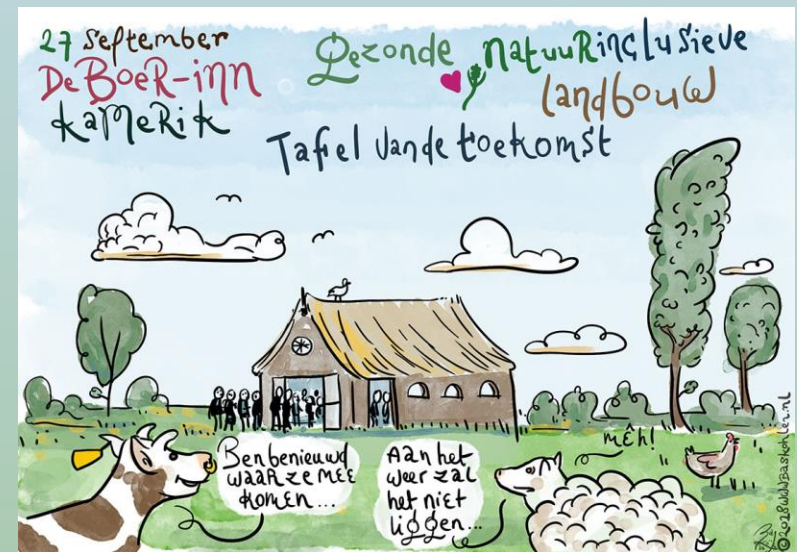 27 September
De BoeR-inn
kameRik
Gezonde natuuRinclusieve
landbouw
Tafel van de toekomst
Ben benieuwd
waar ze mee
komen...
Aan het
weer zal
het niet
liggen...
mêh!
©2018 www.baskohler.nl